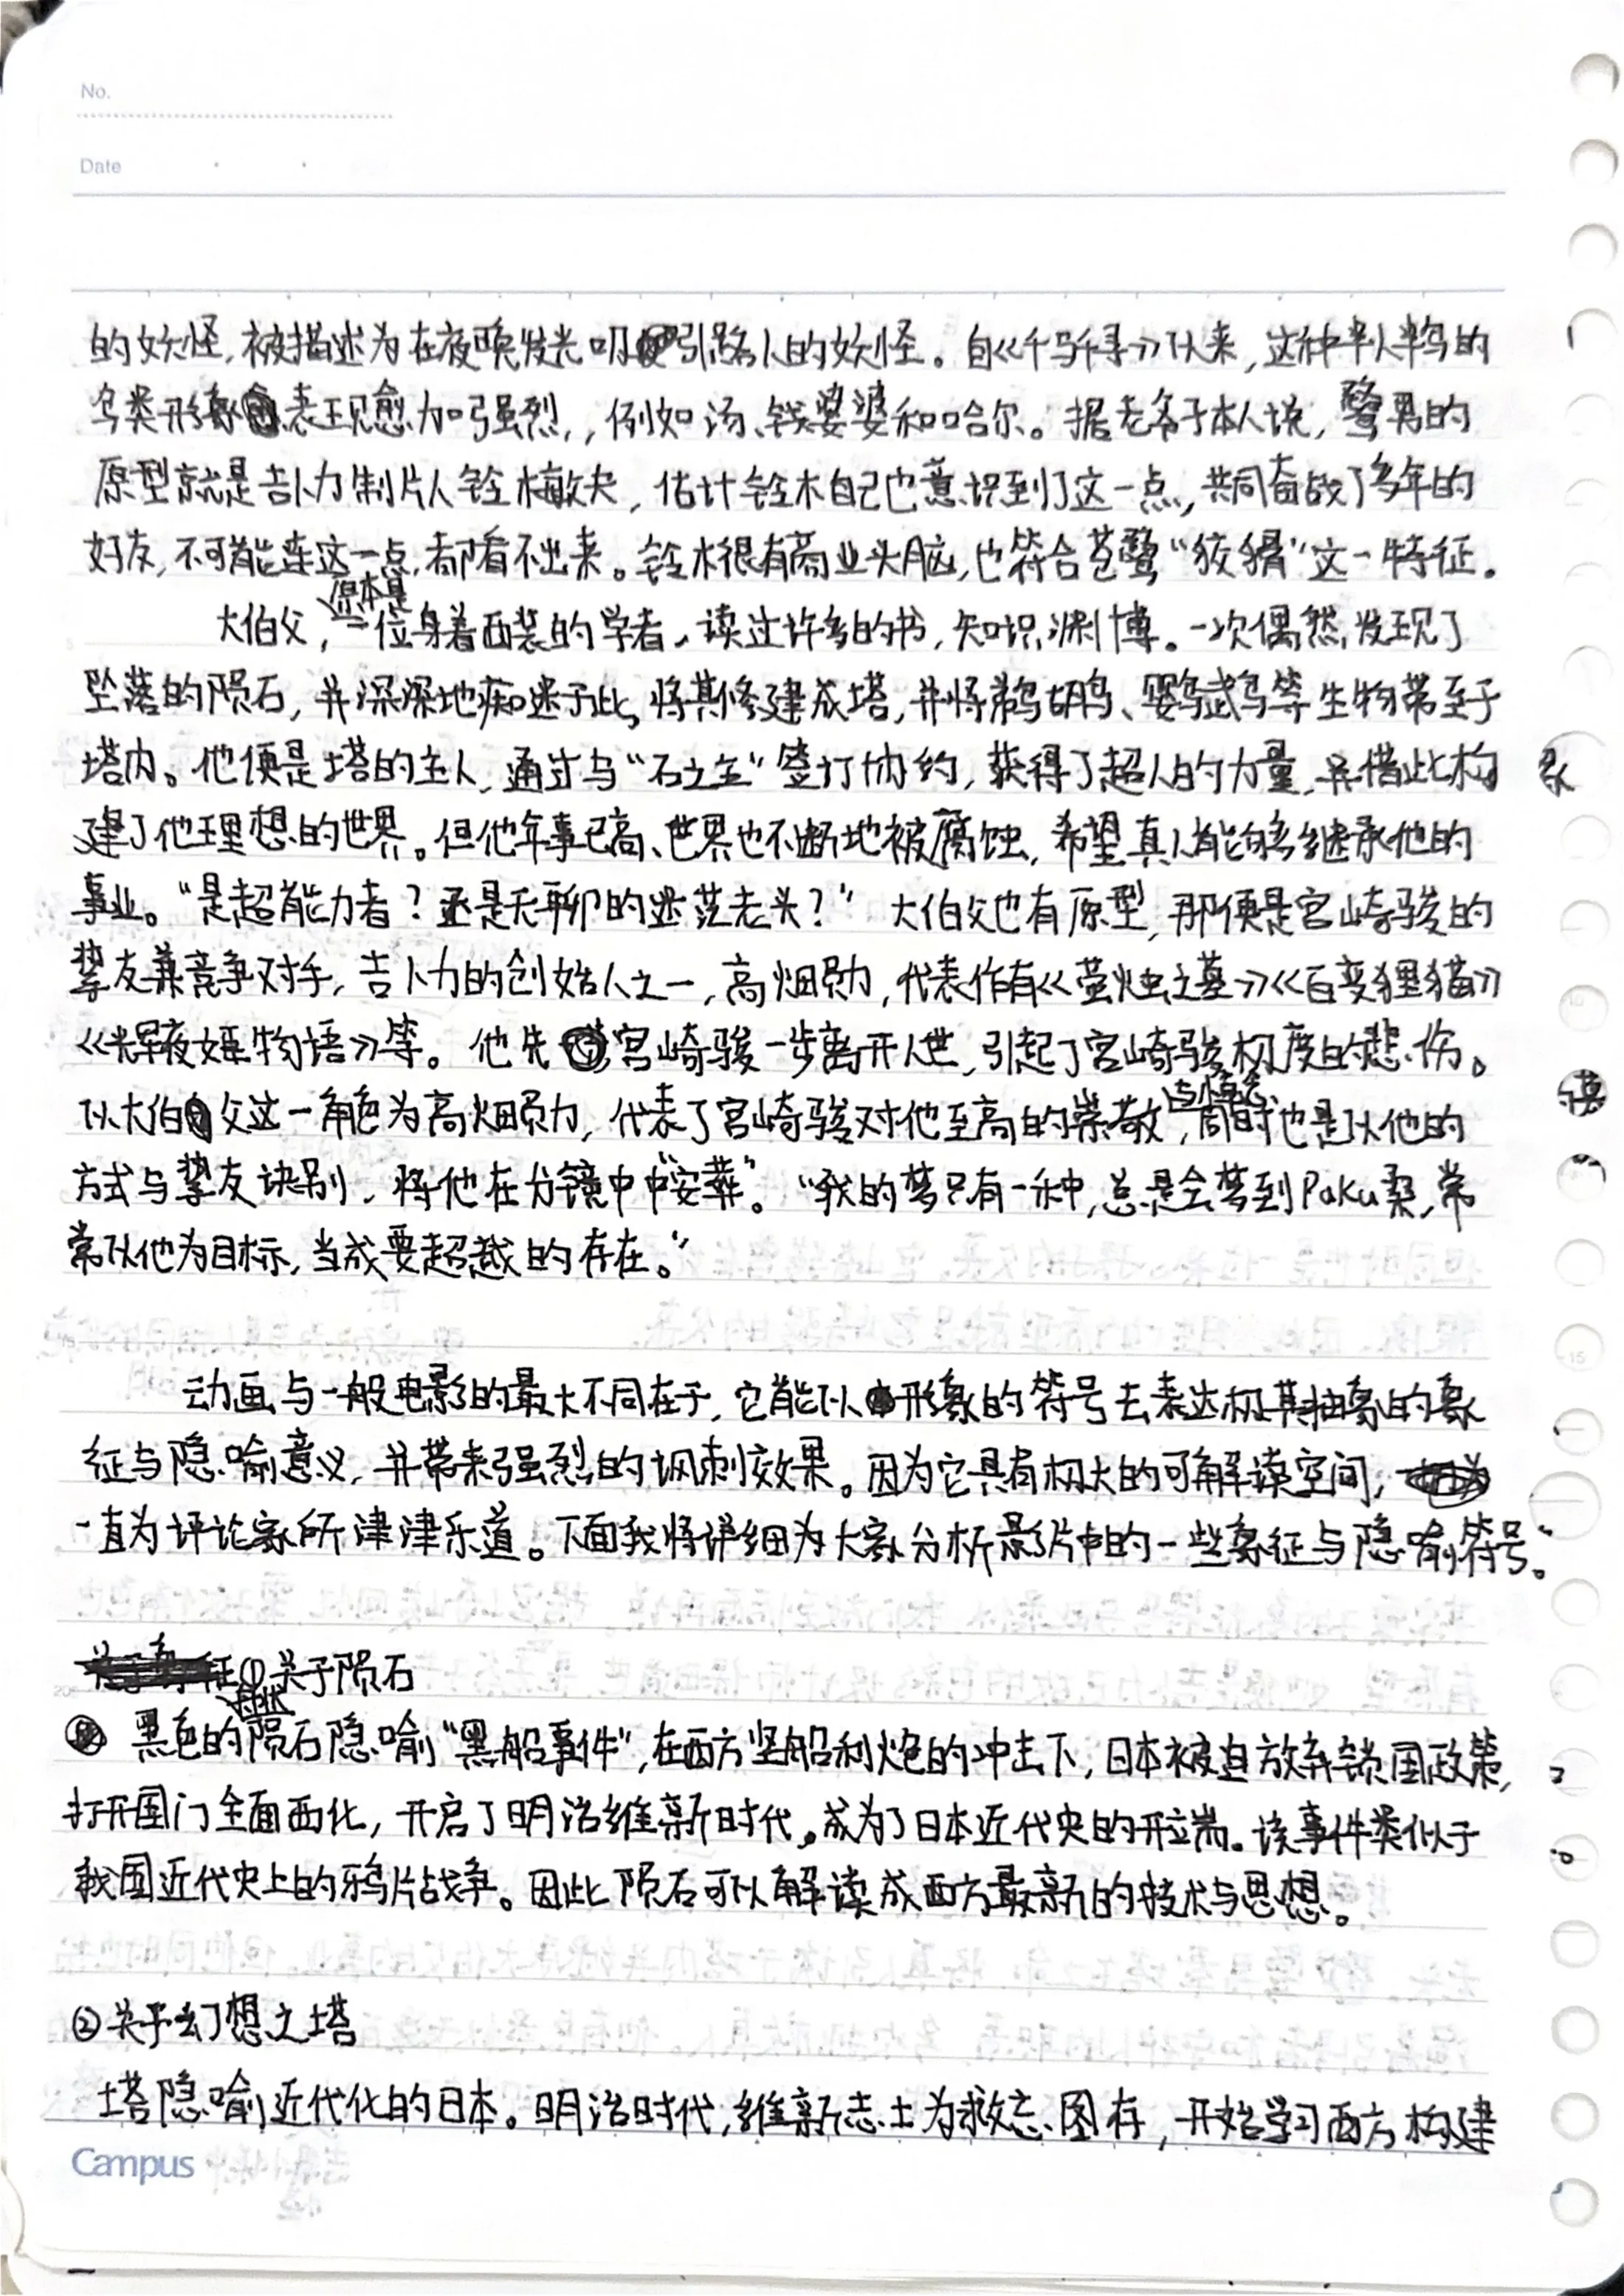 No.
Date
的妖怪,被描述为在夜晚发光吸引路人的妖怪。自《千与千寻》以来,这种半人半鸟的
鸟类形象表现愈加强烈,,例如汤、钱婆婆和哈尔。据老爷子本人说,鹭男的
原型就是吉卜力制片人铃木敏夫,估计铃木自己也意识到了这一点,共同奋战了多年的
好友,不可能连这一点都看不出来。铃木很有商业头脑,也符合苍鹭“狡猾”这一特征。
大伯父,原本是一位身着西装的学者,读过许多的书,知识渊博。一次偶然,发现了
坠落的陨石,并深深地痴迷于此,将其修建成塔,并将鹈鹕鸟、鹦鹉鸟等生物带至于
塔内。他便是塔的主人,通过与“石之主”签订协约,获得了超人的力量,并借此构
建了他理想的世界。但他年事已高、世界也不断地被腐蚀,希望真人能够继承他的
事业。“是超能力者?还是无聊的迷茫老头?”大伯父也有原型,那便是宫崎骏的
挚友兼竞争对手,吉卜力的创始人之一,高畑勋,代表作有《萤火虫之墓》《百变狸猫》
《辉夜姬物语》等。他先宫崎骏一步离开人世,引起了宫崎骏极度的悲伤。
以大伯父这一角色为高畑勋,代表了宫崎骏对他至高的崇敬,同时也是以他的
方式与挚友诀别,将他在分镜中中“安葬”。“我的梦只有一种,总是会梦到Paku桑,常
常以他为目标,当成要超越的存在。”
动画与一般电影的最大不同在于,它能以形象的符号去表达极其抽象的象
征与隐喻意义,并带来强烈的讽刺效果。因为它具有极大的可解读空间,
一直为评论家所津津乐道。下面我将详细为大家分析影片中的一些象征与隐喻符号。
①关于陨石
黑色的陨石隐喻“黑船事件”,在西方坚船利炮的冲击下,日本被迫放弃锁国政策,
打开国门全面西化,开启了明治维新时代。成为了日本近代史的开端。该事件类似于
我国近代史上的鸦片战争。因此陨石可以解读成西方最新的技术与思想。
②关于幻想之塔
塔隐喻近代化的日本。明治时代,维新志士为救亡图存,开始学习西方构建
Campus